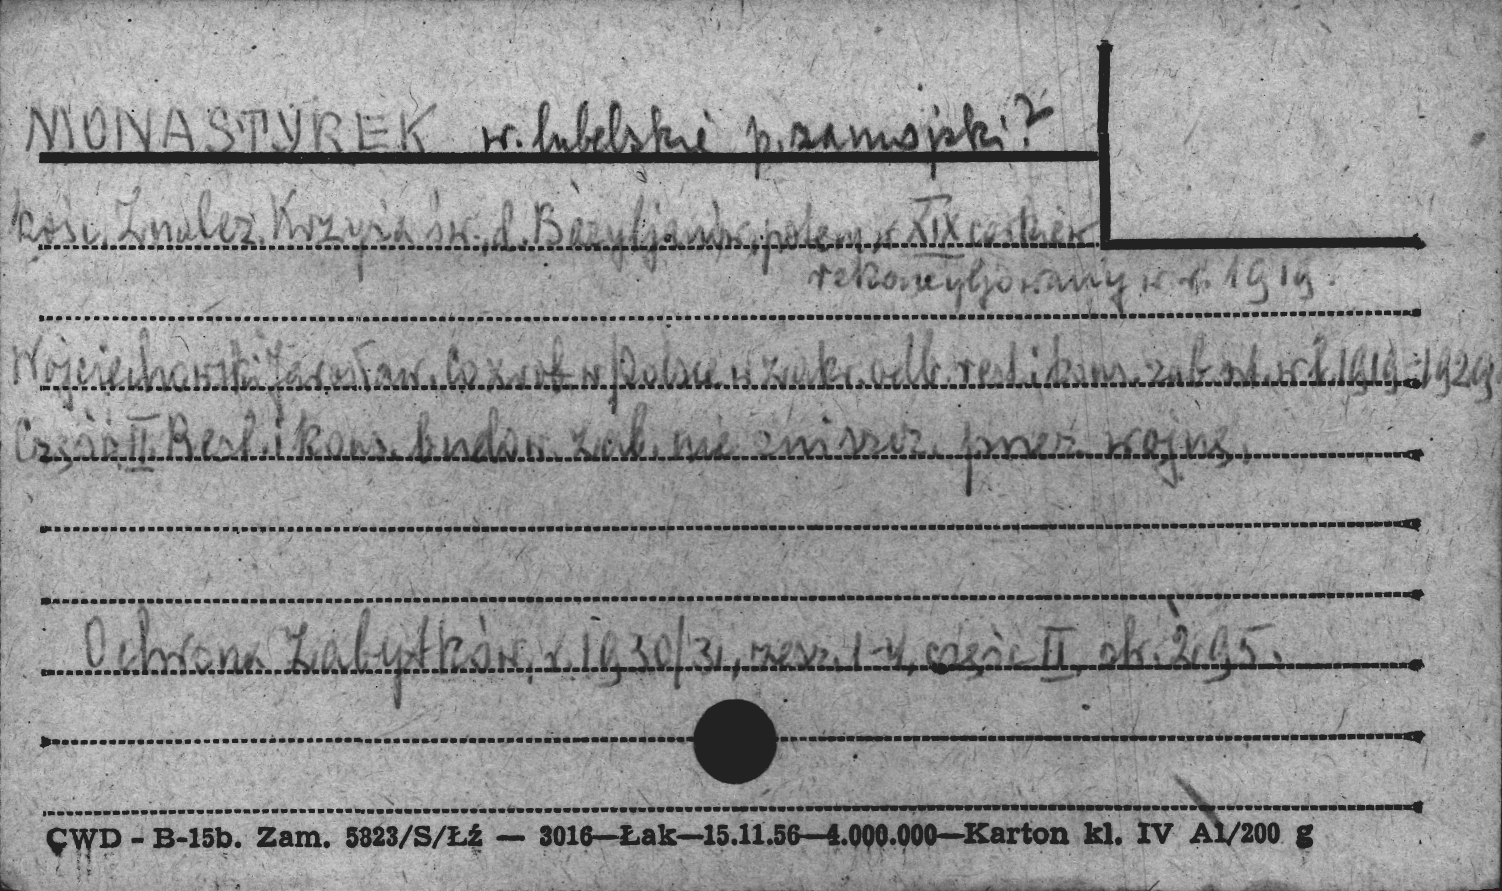 MONASTYREK w. lubelskie p. zamojski?
kość. Znalez. Krzyża św., d. Bazyljanów, potem w XIX cerkiew
rekoncyljowany w r. 1919.
Wojciechowski Jarosław. Co zrob. w Polsce w zakr. odb. rest. i kons. zab. szt. w l. 1919-1929.
Część II. Rest. i kons. budow. zab. nie zniszcz. przez wojnę.
Ochrona Zabytków, r. 1930/31, zesz. 1-4, część II, str. 295.
CWD - B-15b. Zam. 5823/S/Łź — 3016—Łak—15.11.56—4.000.000—Karton kl. IV A1/200 g